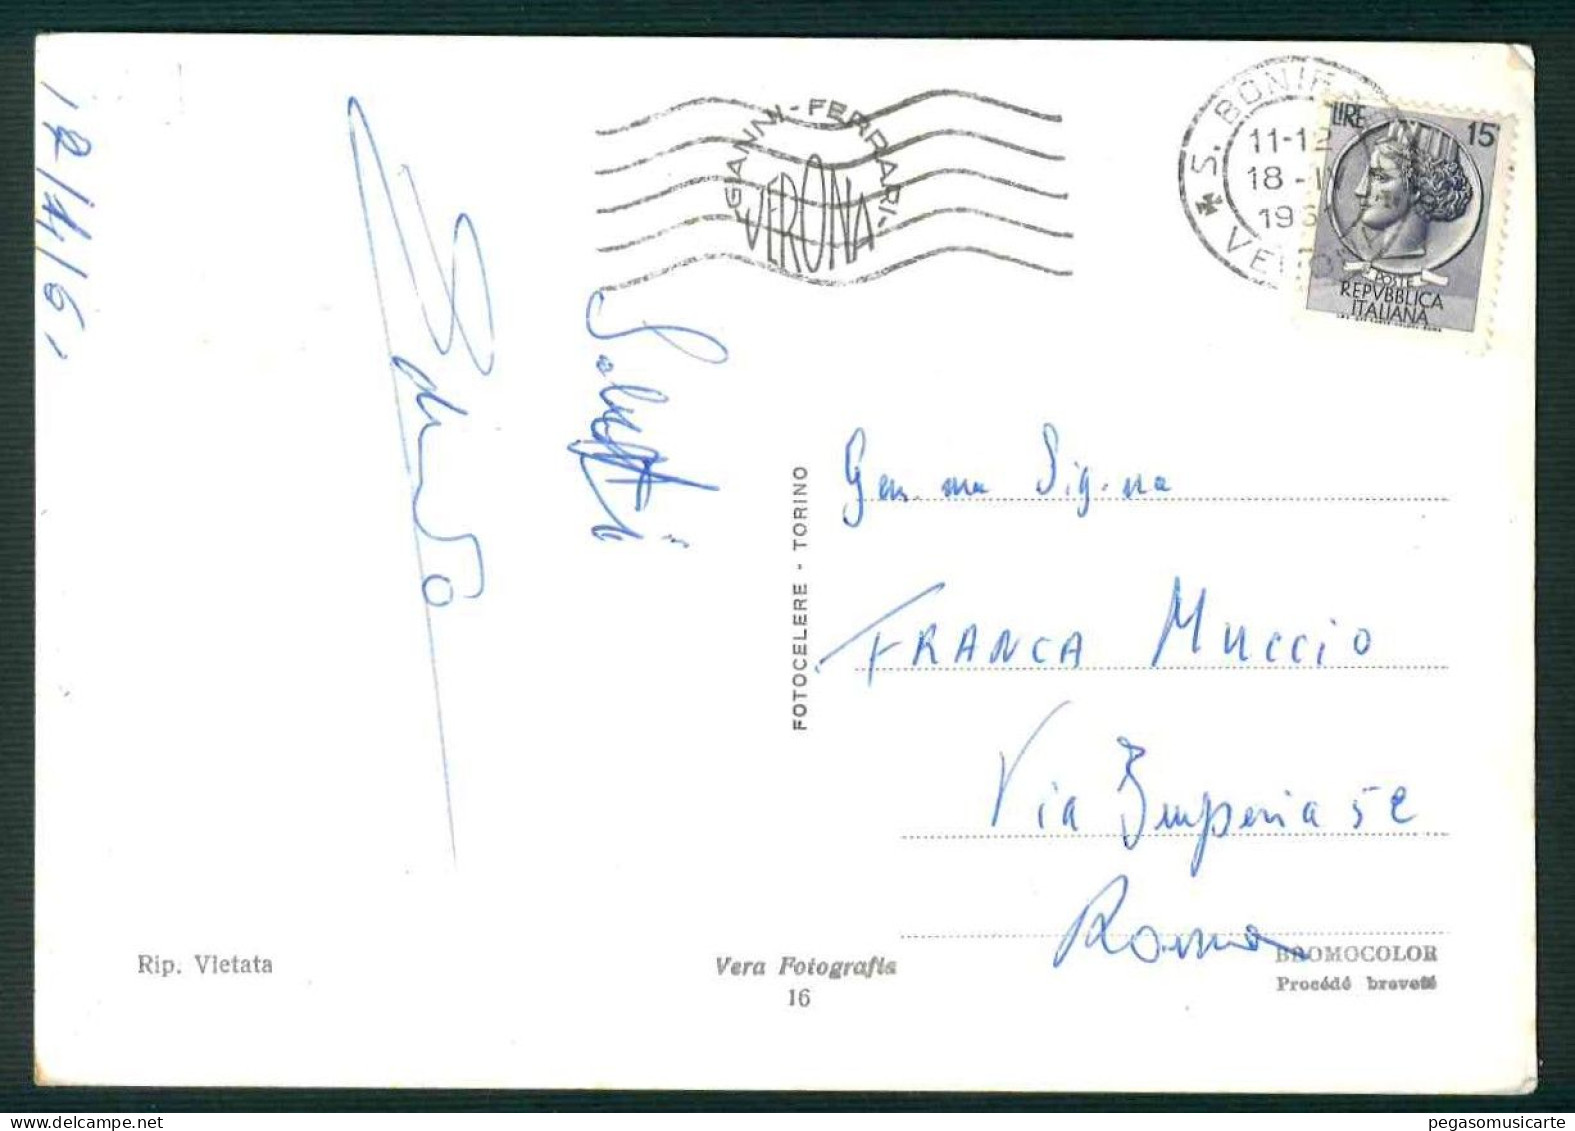 17/4/61
Saluti
GANNI-FERRARI-
VERONA
S. BONIF
11-12
18-IV
1961
VERONA
LIRE 15
POSTE
REPVBBLICA
ITALIANA
FOTOCELERE - TORINO
Gen.ma Sig.na
FRANCA MUCCIO
Via Imperia 52
Roma
Rip. Vietata
Vera Fotografia
16
BROMOCOLOR
Procédé breveté
pegasomusicarte